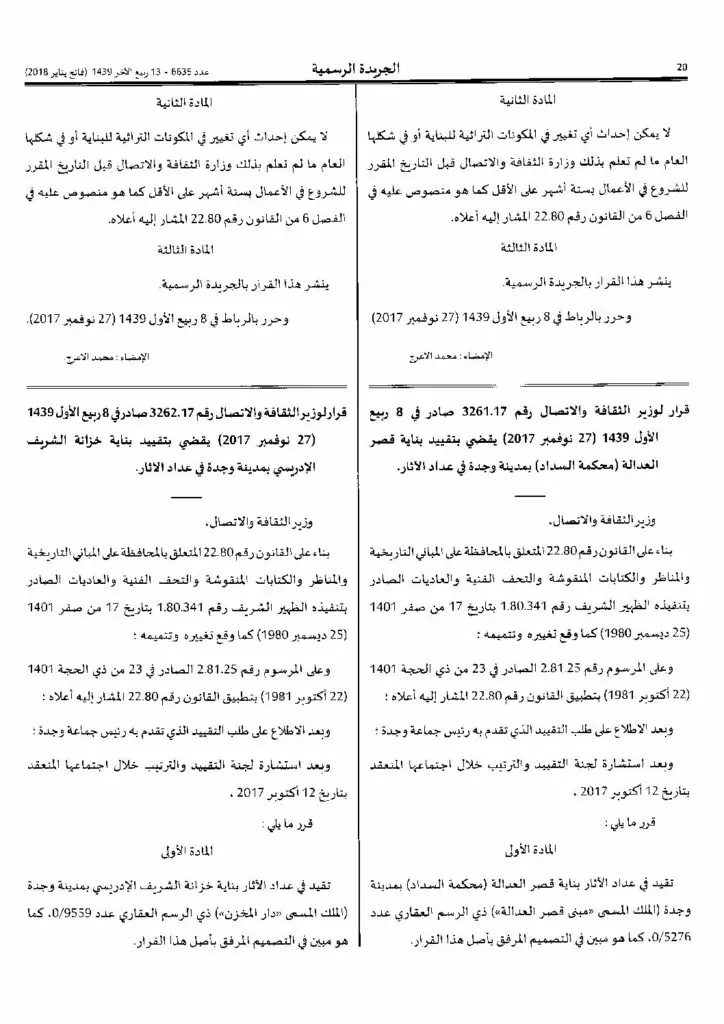 20
الجريدة الرسمية
عدد 6635 - 13 ربيع الآخر 1439 (فاتح يناير 2018)
المادة الثانية
لا يمكن إحداث أي تغيير في المكونات التراثية للبناية أو في شكلها
العام ما لم تعلم بذلك وزارة الثقافة والاتصال قبل التاريخ المقرر
للشروع في الأعمال بستة أشهر على الأقل كما هو منصوص عليه في
الفصل 6 من القانون رقم 22.80 المشار إليه أعلاه.
المادة الثالثة
ينشر هذا القرار بالجريدة الرسمية.
وحرر بالرباط في 8 ربيع الأول 1439 (27 نوفمبر 2017).
الإمضاء : محمد الاعرج
قرار لوزير الثقافة والاتصال رقم 3261.17 صادر في 8 ربيع
الأول 1439 (27 نوفمبر 2017) يقضي بتقييد بناية قصر
العدالة (محكمة السداد) بمدينة وجدة في عداد الآثار.
وزير الثقافة والاتصال،
بناء على القانون رقم 22.80 المتعلق بالمحافظة على المباني التاريخية
والمناظر والكتابات المنقوشة والتحف الفنية والعاديات الصادر
بتنفيذه الظهير الشريف رقم 1.80.341 بتاريخ 17 من صفر 1401
(25 ديسمبر 1980) كما وقع تغييره وتتميمه ؛
وعلى المرسوم رقم 2.81.25 الصادر في 23 من ذي الحجة 1401
(22 أكتوبر 1981) بتطبيق القانون رقم 22.80 المشار إليه أعلاه ؛
وبعد الاطلاع على طلب التقييد الذي تقدم به رئيس جماعة وجدة ؛
وبعد استشارة لجنة التقييد والترتيب خلال اجتماعها المنعقد
بتاريخ 12 أكتوبر 2017 ،
قرر ما يلي :
المادة الأولى
تقيد في عداد الآثار بناية قصر العدالة (محكمة السداد) بمدينة
وجدة (الملك المسمى «مبنى قصر العدالة») ذي الرسم العقاري عدد
0/5276، كما هو مبين في التصميم المرفق بأصل هذا القرار.
المادة الثانية
لا يمكن إحداث أي تغيير في المكونات التراثية للبناية أو في شكلها
العام ما لم تعلم بذلك وزارة الثقافة والاتصال قبل التاريخ المقرر
للشروع في الأعمال بستة أشهر على الأقل كما هو منصوص عليه في
الفصل 6 من القانون رقم 22.80 المشار إليه أعلاه.
المادة الثالثة
ينشر هذا القرار بالجريدة الرسمية.
وحرر بالرباط في 8 ربيع الأول 1439 (27 نوفمبر 2017).
الإمضاء : محمد الاعرج
قرار لوزير الثقافة والاتصال رقم 3262.17 صادر في 8 ربيع الأول 1439
(27 نوفمبر 2017) يقضي بتقييد بناية خزانة الشريف
الإدريسي بمدينة وجدة في عداد الآثار.
وزير الثقافة والاتصال،
بناء على القانون رقم 22.80 المتعلق بالمحافظة على المباني التاريخية
والمناظر والكتابات المنقوشة والتحف الفنية والعاديات الصادر
بتنفيذه الظهير الشريف رقم 1.80.341 بتاريخ 17 من صفر 1401
(25 ديسمبر 1980) كما وقع تغييره وتتميمه ؛
وعلى المرسوم رقم 2.81.25 الصادر في 23 من ذي الحجة 1401
(22 أكتوبر 1981) بتطبيق القانون رقم 22.80 المشار إليه أعلاه ؛
وبعد الاطلاع على طلب التقييد الذي تقدم به رئيس جماعة وجدة ؛
وبعد استشارة لجنة التقييد والترتيب خلال اجتماعها المنعقد
بتاريخ 12 أكتوبر 2017 ،
قرر ما يلي :
المادة الأولى
تقيد في عداد الآثار بناية خزانة الشريف الإدريسي بمدينة وجدة
(الملك المسمى «دار المخزن») ذي الرسم العقاري عدد 0/9559، كما
هو مبين في التصميم المرفق بأصل هذا القرار.